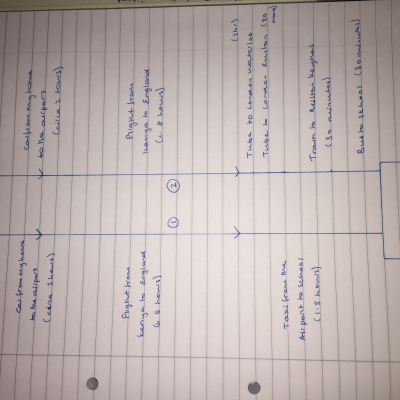 Car from my home
to the airport
(circa 2 hours)
Flight from
kenya to England
8 hours)
Taxi from the
Airport to school
(1.5 hours)
①
②
Car from my home
to the airport
(circa 2 hours)
Flight from
kenya to England
8 hours)
Tube to London waterloo (1hr)
Tube to London Euston
mins)
Train to Milton keynes
(30 minutes)
Bus to school (30 minutes)